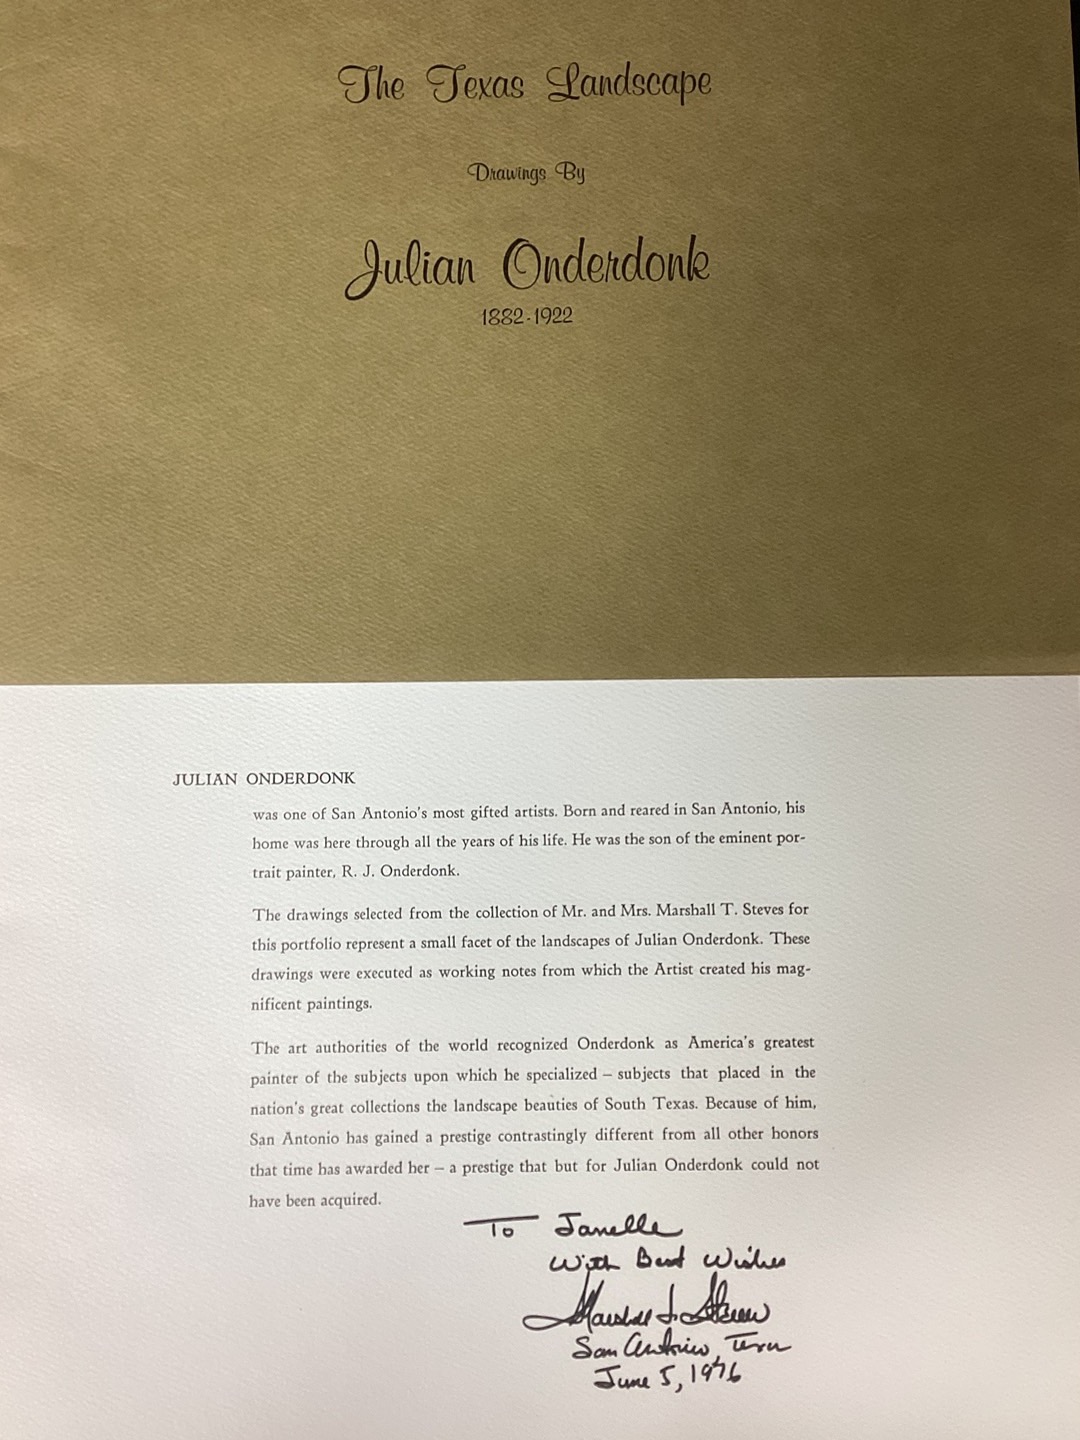 The Texas Landscape
Drawings By
Julian Onderdonk
1882-1922
JULIAN ONDERDONK
was one of San Antonio's most gifted artists. Born and reared in San Antonio, his
home was here through all the years of his life. He was the son of the eminent por-
trait painter, R. J. Onderdonk.
The drawings selected from the collection of Mr. and Mrs. Marshall T. Steves for
this portfolio represent a small facet of the landscapes of Julian Onderdonk. These
drawings were executed as working notes from which the Artist created his mag-
nificent paintings.
The art authorities of the world recognized Onderdonk as America's greatest
painter of the subjects upon which he specialized – subjects that placed in the
nation's great collections the landscape beauties of South Texas. Because of him,
San Antonio has gained a prestige contrastingly different from all other honors
that time has awarded her – a prestige that but for Julian Onderdonk could not
have been acquired.
To Janelle
With Best Wishes
Marshall T. Steves
San Antonio, Texas
June 5, 1976